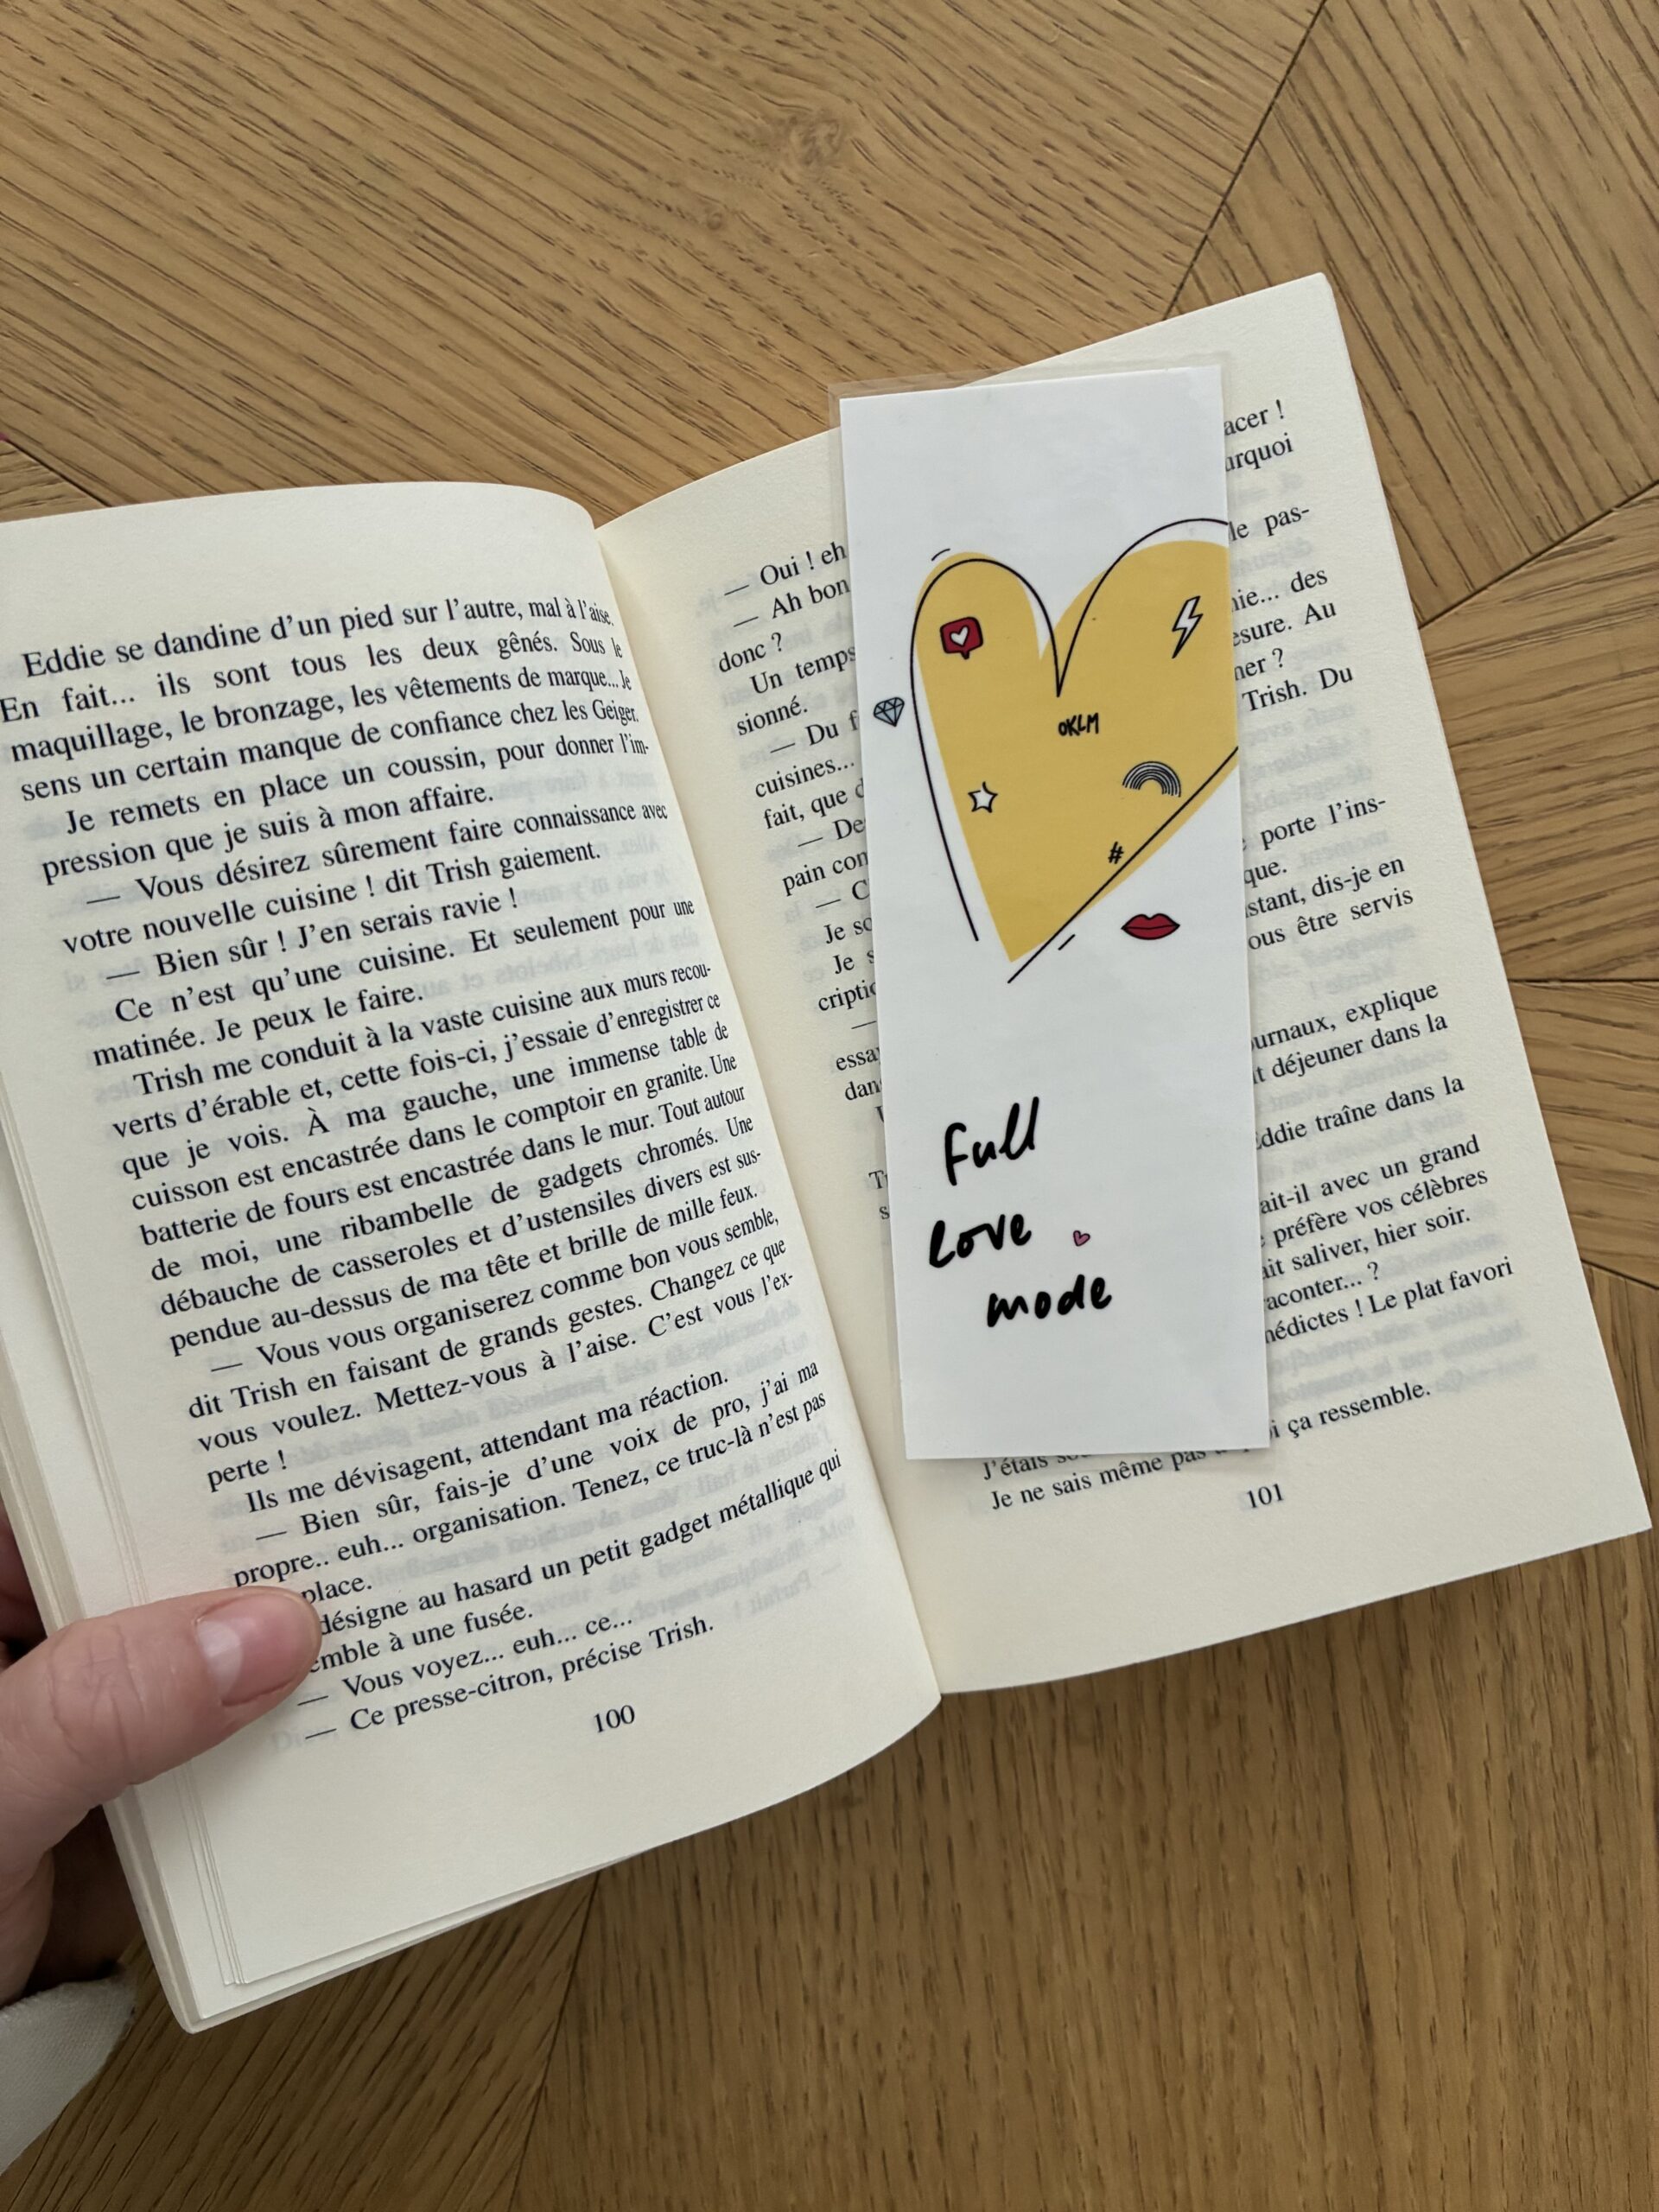 Eddie se dandine d'un pied sur l'autre, mal à l'aise.
En fait... ils sont tous les deux gênés. Sous le
maquillage, le bronzage, les vêtements de marque... Je
sens un certain manque de confiance chez les Geiger.
Je remets en place un coussin, pour donner l'im-
pression que je suis à mon affaire.
— Vous désirez sûrement faire connaissance avec
votre nouvelle cuisine ! dit Trish gaiement.
— Bien sûr ! J'en serais ravie !
Ce n'est qu'une cuisine. Et seulement pour une
matinée. Je peux le faire.
Trish me conduit à la vaste cuisine aux murs recou-
verts d'érable et, cette fois-ci, j'essaie d'enregistrer ce
que je vois. À ma gauche, une immense table de
cuisson est encastrée dans le comptoir en granite. Une
batterie de fours est encastrée dans le mur. Tout autour
de moi, une ribambelle de gadgets chromés. Une
débauche de casseroles et d'ustensiles divers est sus-
pendue au-dessus de ma tête et brille de mille feux.
— Vous vous organiserez comme bon vous semble,
dit Trish en faisant de grands gestes. Changez ce que
vous voulez. Mettez-vous à l'aise. C'est vous l'ex-
perte !
Ils me dévisagent, attendant ma réaction.
— Bien sûr, fais-je d'une voix de pro, j'ai ma
propre.. euh... organisation. Tenez, ce truc-là n'est pas
place.
désigne au hasard un petit gadget métallique qui
emble à une fusée.
— Vous voyez... euh... ce...
— Ce presse-citron, précise Trish.
100
— Oui ! eh
— Ah bon
donc ?
Un temps
sionné.
— Du f
cuisines...
fait, que d
— De
pain con
— C
Je so
Je s
criptio
—
essa
dan
acer !
urquoi
le pas-
nie... des
esure. Au
ner ?
Trish. Du
porte l'ins-
que.
stant, dis-je en
ous être servis
ournaux, explique
t déjeuner dans la
Eddie traîne dans la
ait-il avec un grand
préfère vos célèbres
ait saliver, hier soir.
aconter... ?
nédictes ! Le plat favori
J'étais
Je ne sais même pas à oi ça ressemble.
101
OKLM
#
Full
Love
mode